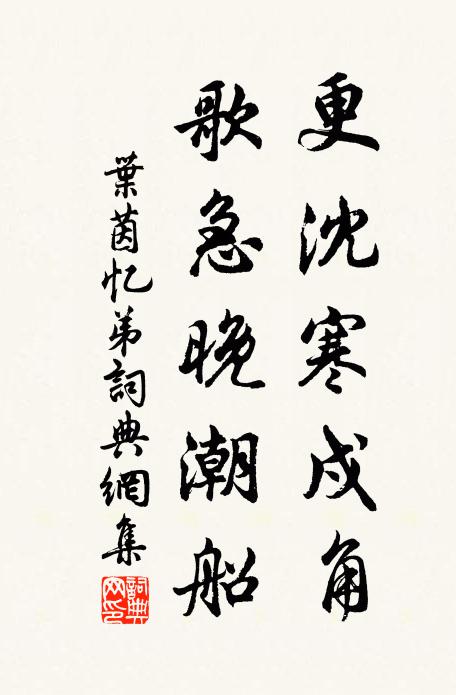 更沈寒戍角
歌急晚潮船
葉茵忆弟詞典網集
詞典网印